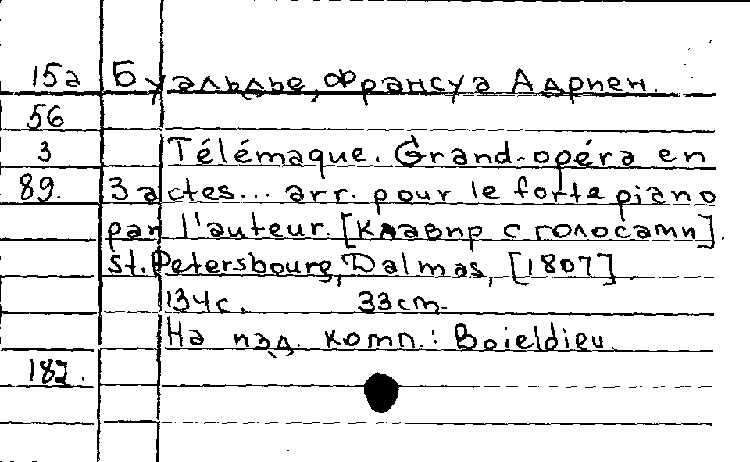 15а Буальдье, Франсуа Адриен.
56
3 Télémaque. Grand-opéra en
89. 3 actes... arr. pour le forte piano
par l'auteur. [Клавир с голосами].
St. Petersbourg, Dalmas, [1807].
134с. 33cm.
На изд. комп.: Boieldieu
182.